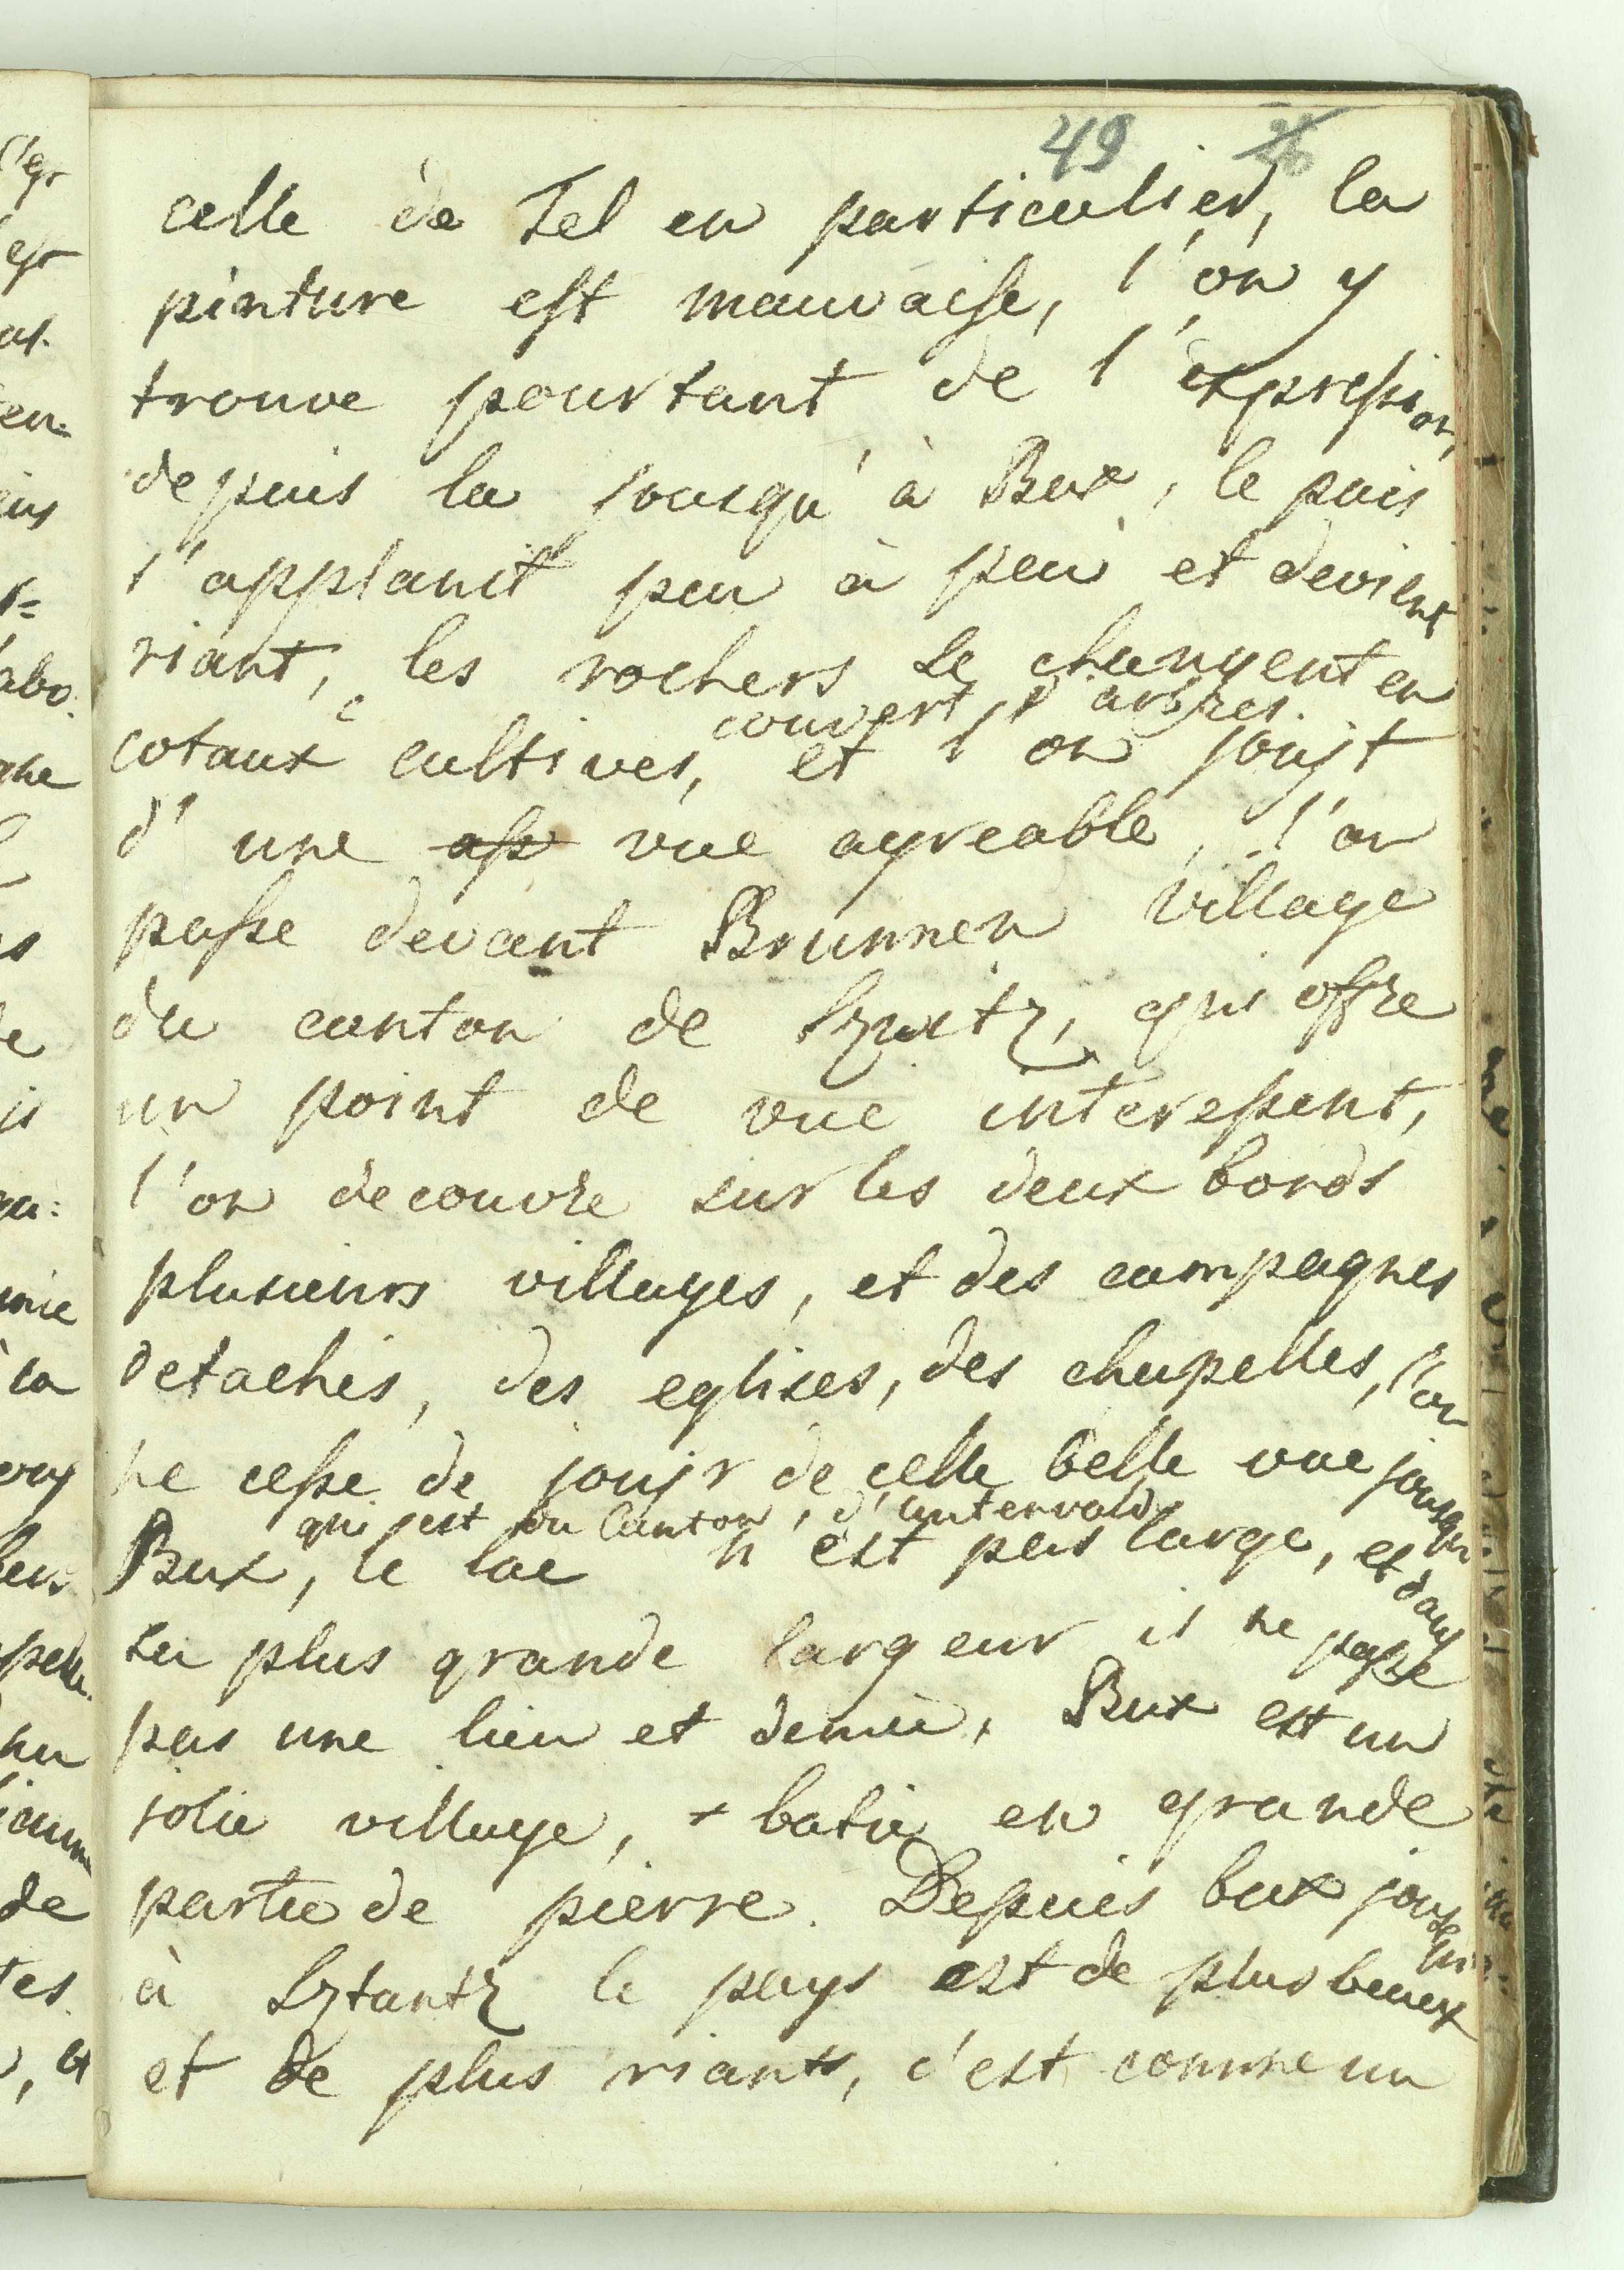 49 26
celle de Tel en particulier, la
pinture est mauvaise, l'on y
trouve pourtant de l'expression,
depuis la jousqu'à Bux, le pais
s'applanit peu à peu et devient
riant, les rochers se changent en
couvert d'arbres.
cotaux cultives, et l'on joujt
d'une asp vue agreable, l'on
passe devant Brunnen village
du canton de Szwitz, qui offre
un point de vue interessent,
l'on decouvre sur les deux bords
plusieurs villages, et des campagnes
detachés, des eglises, des chapelles, l'on
ne cesse de joujr de celle belle vue jousqu
qui est du Canton, d'Untervald,
Bux, le lac n'est pas large, et dans
sa plus grande largeur il ne passe
pas une lieu et demie, Bux est un
jolie village, + batie en grande
partie de pierre. Depuis bux jousqu
à Sztantz le pays est de plus beaux
et de plus riants, c'est comme un